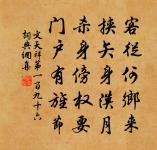 客從何鄉來
挾矢射漢月
殺身傍權要
門户有旌節
文天祥第一百九十六
詞典網集